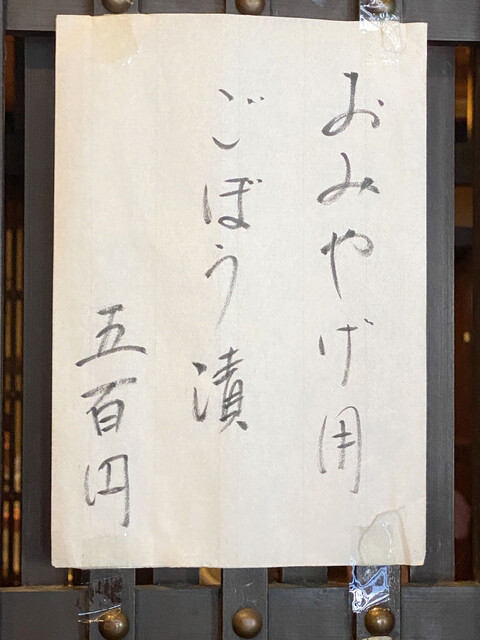 おみやげ用
ごぼう漬
五百円